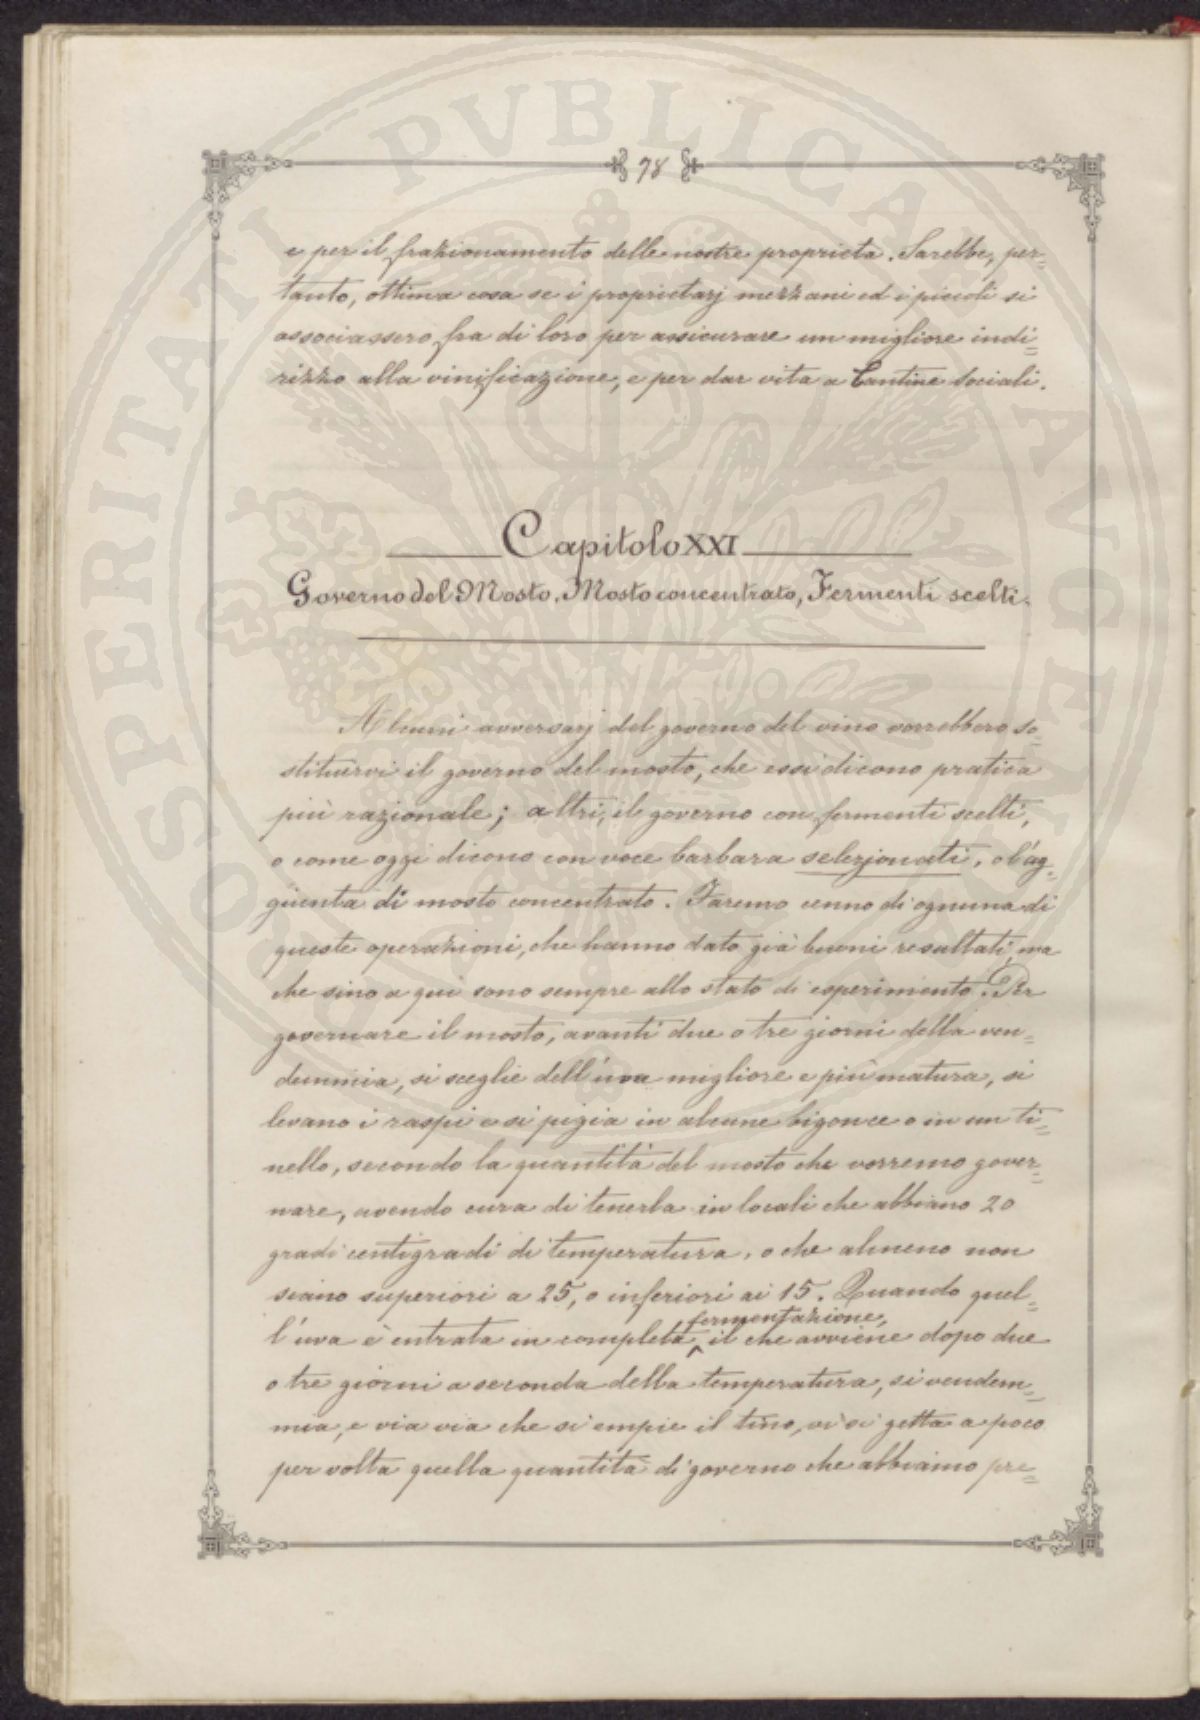 78
e per il frazionamento delle nostre proprietà. Sarebbe, per=
tanto, ottima cosa se i proprietarj mezzani ed i piccoli si
associassero fra di loro per assicurare un migliore indi=
rizzo alla vinificazione, e per dar vita a Cantine Sociali.
Capitolo XXI
Governo del Mosto. Mosto concentrato, Fermenti scelti.
Alcuni avversarj del governo del vino vorrebbero so=
stituirvi il governo del mosto, che essi dicono pratica
più razionale; altri, il governo con fermenti scelti,
o come oggi dicono con voce barbara selezionati, o l'ag=
giunta di mosto concentrato. Faremo cenno di ognuna di
queste operazioni, che hanno dato già buoni resultati, ma
che sino a qui sono sempre allo stato di esperimento. Per
governare il mosto, avanti due o tre giorni della ven=
demmia, si sceglie dell'uva migliore e più matura, si
levano i raspi e si pigia in alcune bigonce o in un ti=
nello, secondo la quantità del mosto che vorremo gover=
nare, avendo cura di tenerla in locali che abbiano 20
gradi centigradi di temperatura, o che almeno non
siano superiori a 25, o inferiori ai 15. Quando quel=
l'uva è entrata in completa fermentazione, il che avviene dopo due
o tre giorni a seconda della temperatura, si vendem=
mia, e via via che si empie il tino, vi si getta a poco
per volta quella quantità di governo che abbiamo pre=
PROSPERITATI PVBLICAE AVGENDAE